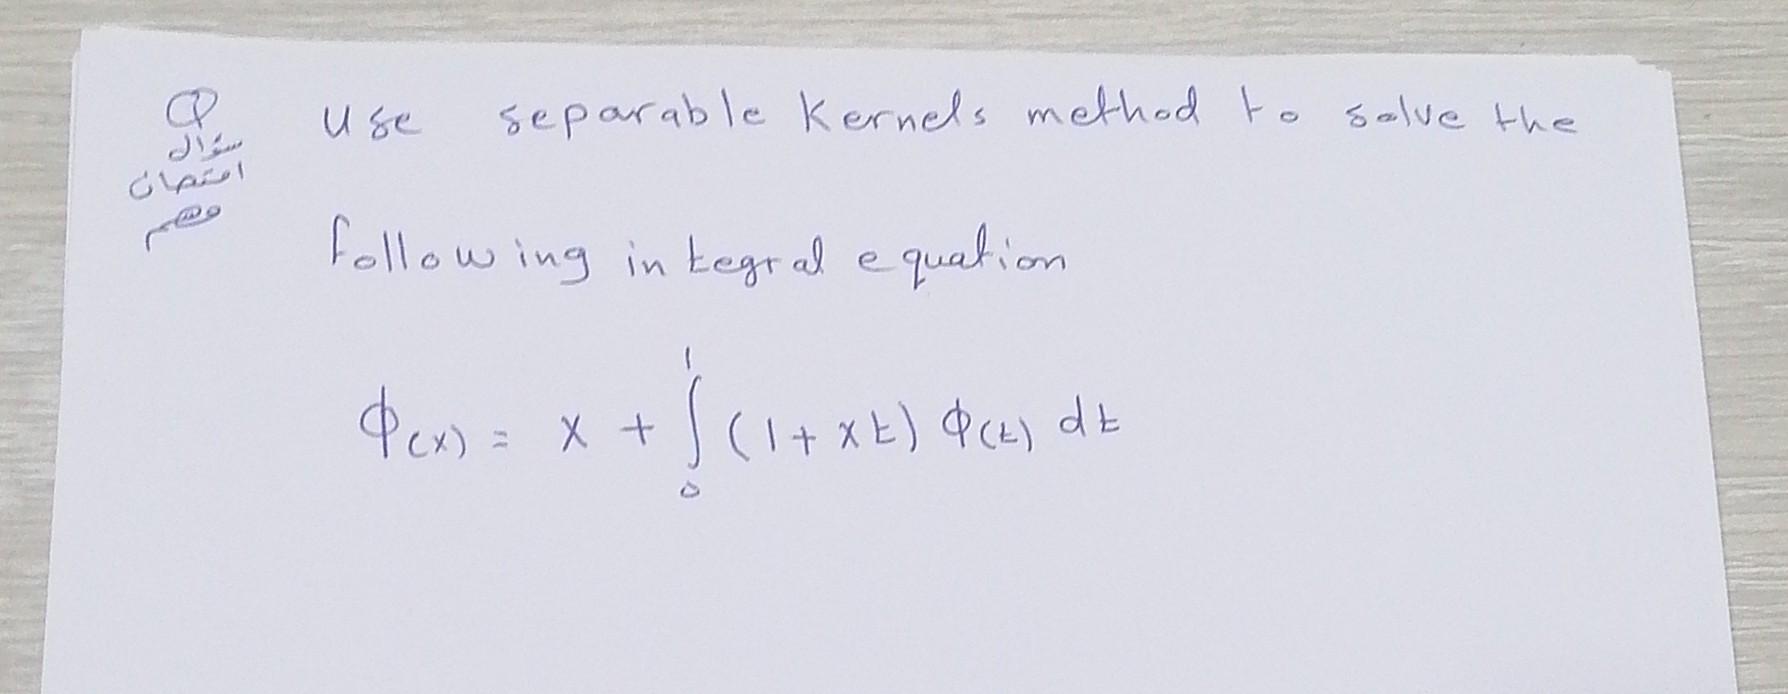 Q use separable Kernels method to solve the
سؤال
امتحان
مهم
following integral equation
ϕ(x) = x + ∫₀¹ (1 + xt) ϕ(t) dt